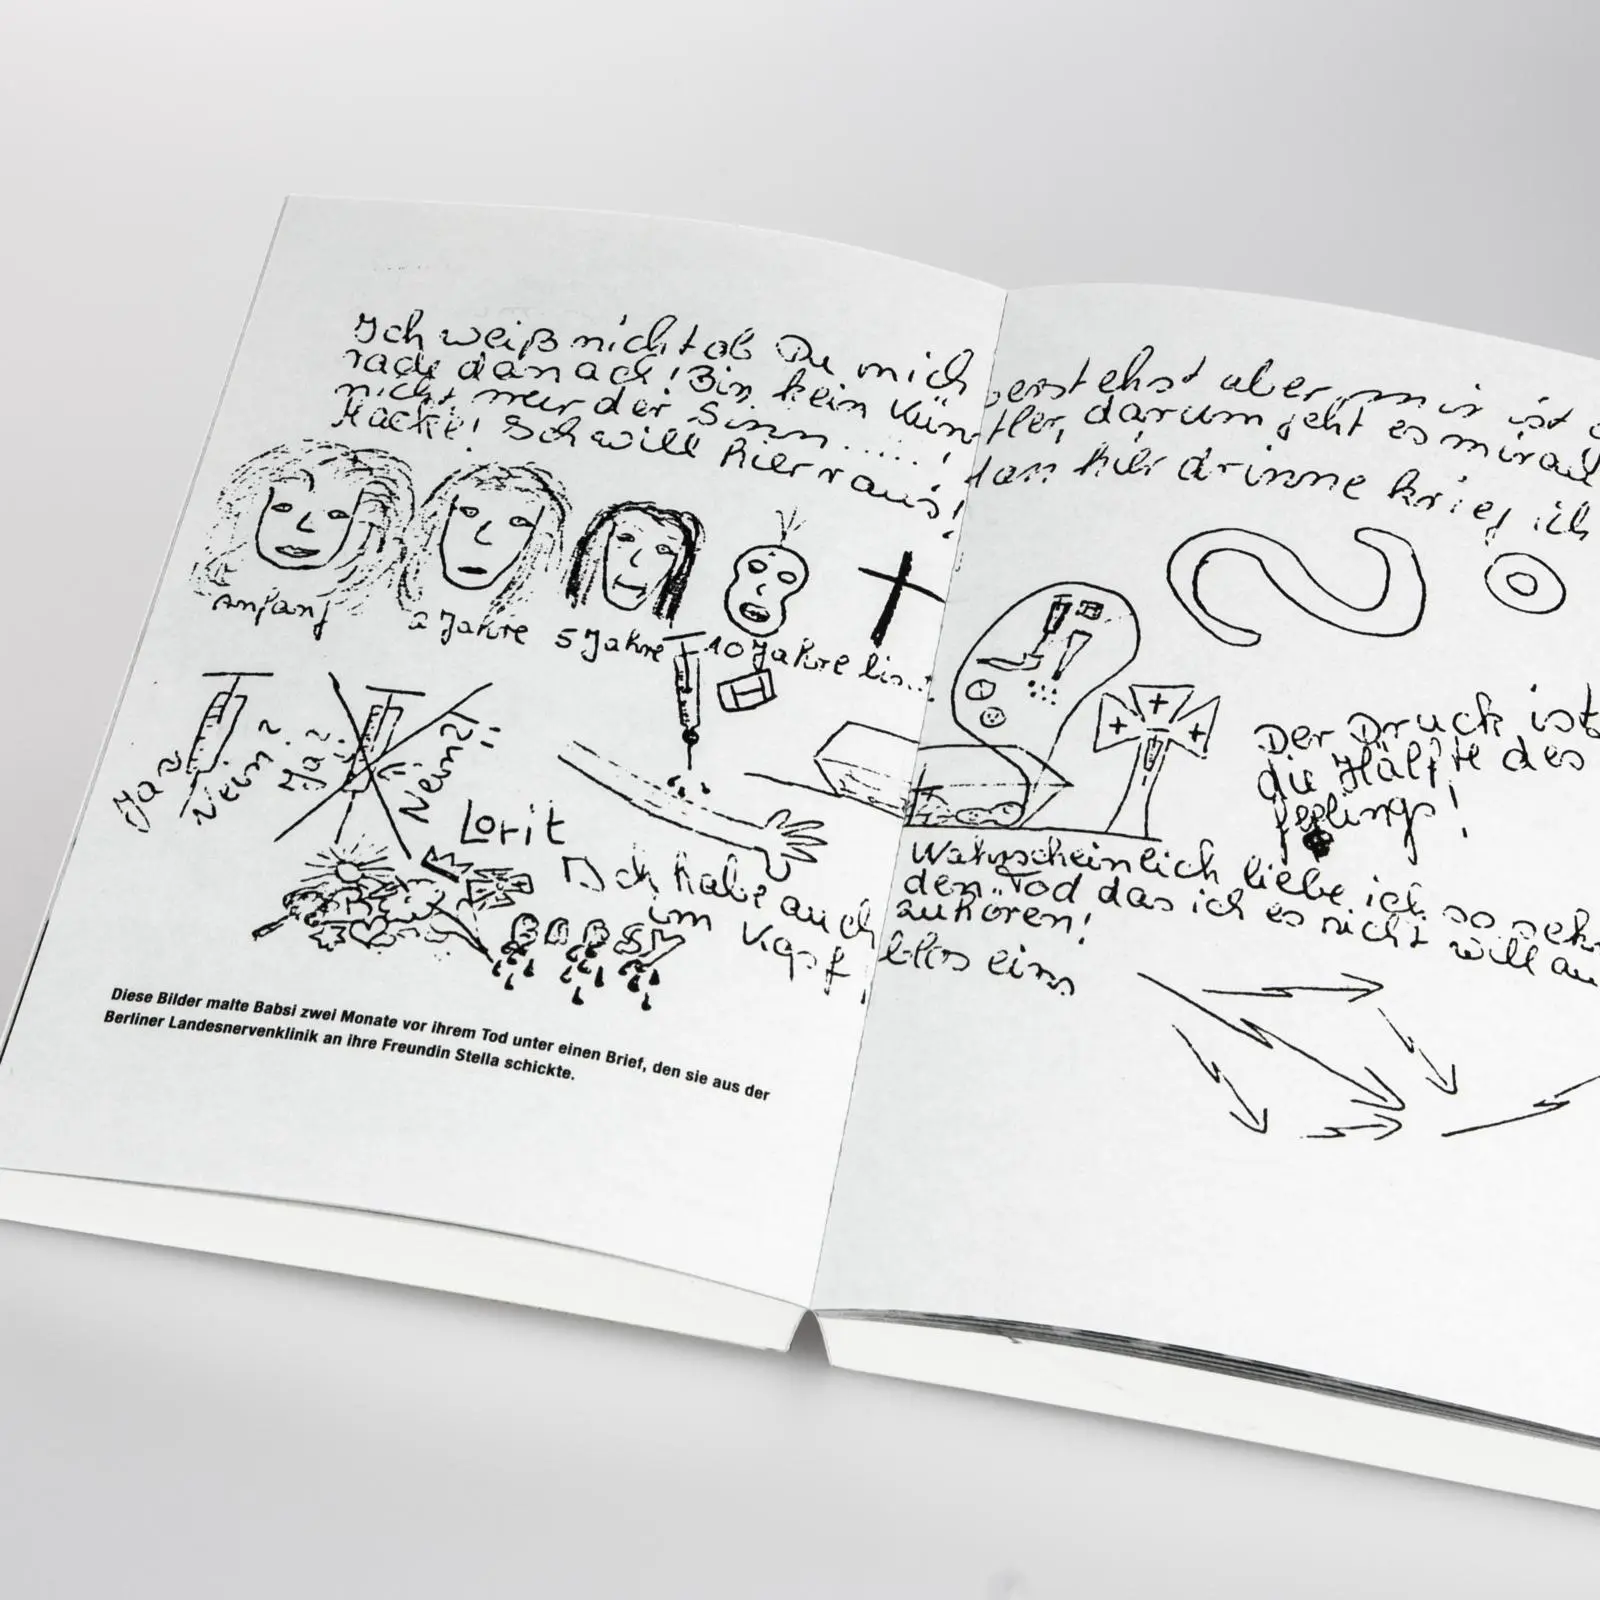 Ich weiß nicht ob Du mich verstehst aber mir ist
rade danach! Bin kein Künstler, darum geht es mir auch
nicht nur der Sinn......!
Kacke! Ich will hier raus! dann hier drinne krieg ich
anfang
2 Jahre
5 Jahre
10 Jahre
Ja?
Nein?
Ja?
Nein?!
Der Druck ist
die Hälfte des
feelings!
Lorit
Wahrscheinlich liebe ich so seh
den Tod das ich es nicht will au
zuhören!
Ich habe auch
im Kopf blos eins
Diese Bilder malte Babsi zwei Monate vor ihrem Tod unter einen Brief, den sie aus der
Berliner Landesnervenklinik an ihre Freundin Stella schickte.